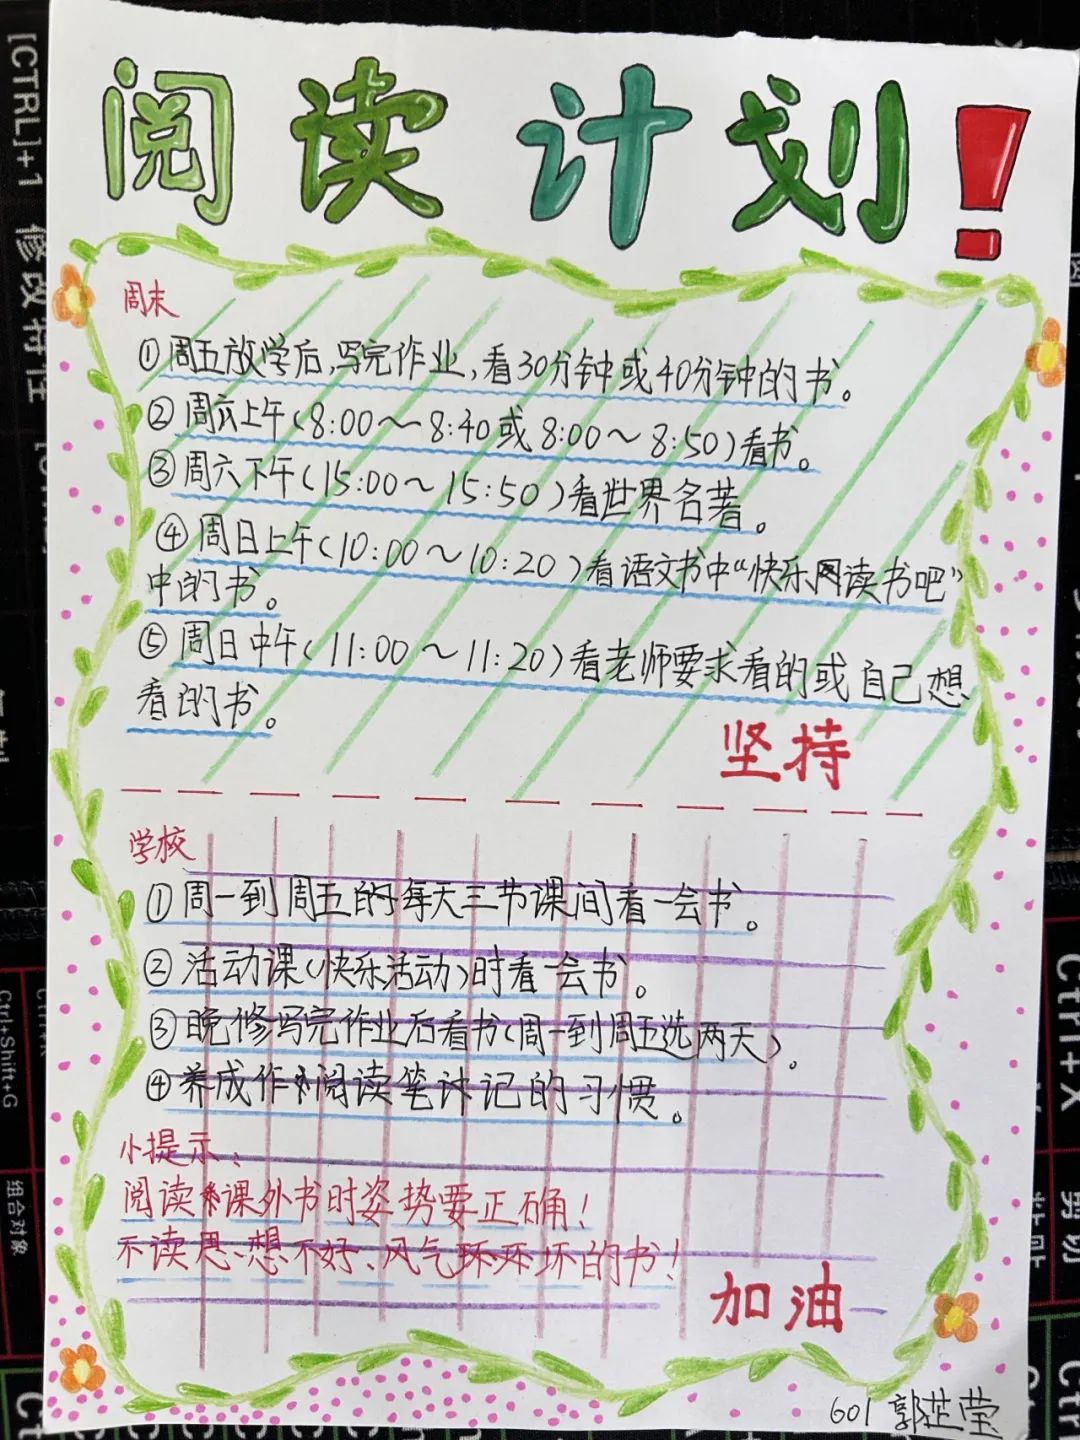 阅读计划！
周末
①周五放学后，写完作业，看30分钟或40分钟的书。
②周六上午(8:00～8:40或8:00～8:50)看书。
③周六下午(15:00～15:50)看世界名著。
④周日上午(10:00～10:20)看语文书中“快乐阅读书吧”
中的书。
⑤周日中午(11:00～11:20)看老师要求看的或自己想
看的书。
坚持
学校
①周一到周五的每天三节课间看一会书。
②活动课(快乐活动)时看一会书。
③晚修写完作业后看书(周一到周五选两天)。
④养成作阅读笔记的习惯。
小提示：
阅读课外书时姿势要正确！
不读思想不好、风气坏的书！
加油
601 郭芷莹
[CTRL]+1 修改特性
Ctrl+Shift+G
组合对象
Ctrl+X
剪切